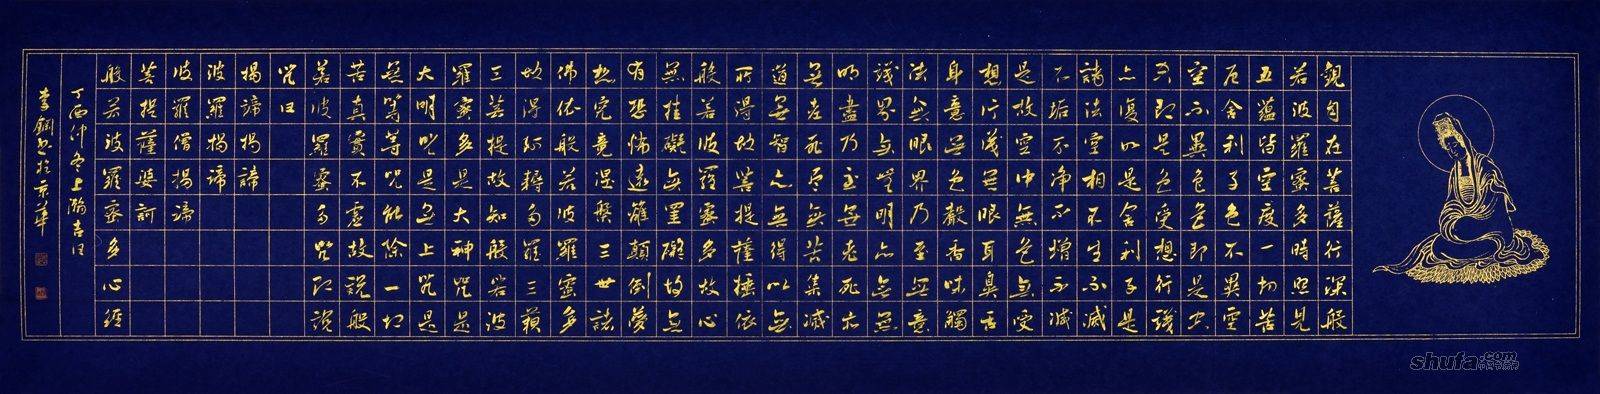 觀自在菩薩行深般
若波羅蜜多時照見
五蘊皆空度一切苦
厄舍利子色不異空
空不異色色即是空
空即是色受想行識
亦復如是舍利子是
諸法空相不生不滅
不垢不淨不增不減
是故空中無色無受
想行識無眼耳鼻舌
身意無色聲香味觸
法無眼界乃至無意
識界無無明亦無無
明盡乃至無老死亦
無老死盡無苦集滅
道無智亦無得以無
所得故菩提薩埵依
般若波羅蜜多故心
無挂礙無罣礙故無
有恐怖遠離顛倒夢
想究竟涅槃三世諸
佛依般若波羅蜜多
故得阿耨多羅三藐
三菩提故知般若波
羅蜜多是大神咒是
大明咒是無上咒是
無等等咒能除一切
苦真實不虛故說般
若波羅蜜多咒即說
咒曰
揭諦揭諦
波羅揭諦
波羅僧揭諦
菩提薩婆訶
般若波羅蜜多心經
丁酉仲冬上瀚吉日
李鋼書於京華
shufa.com